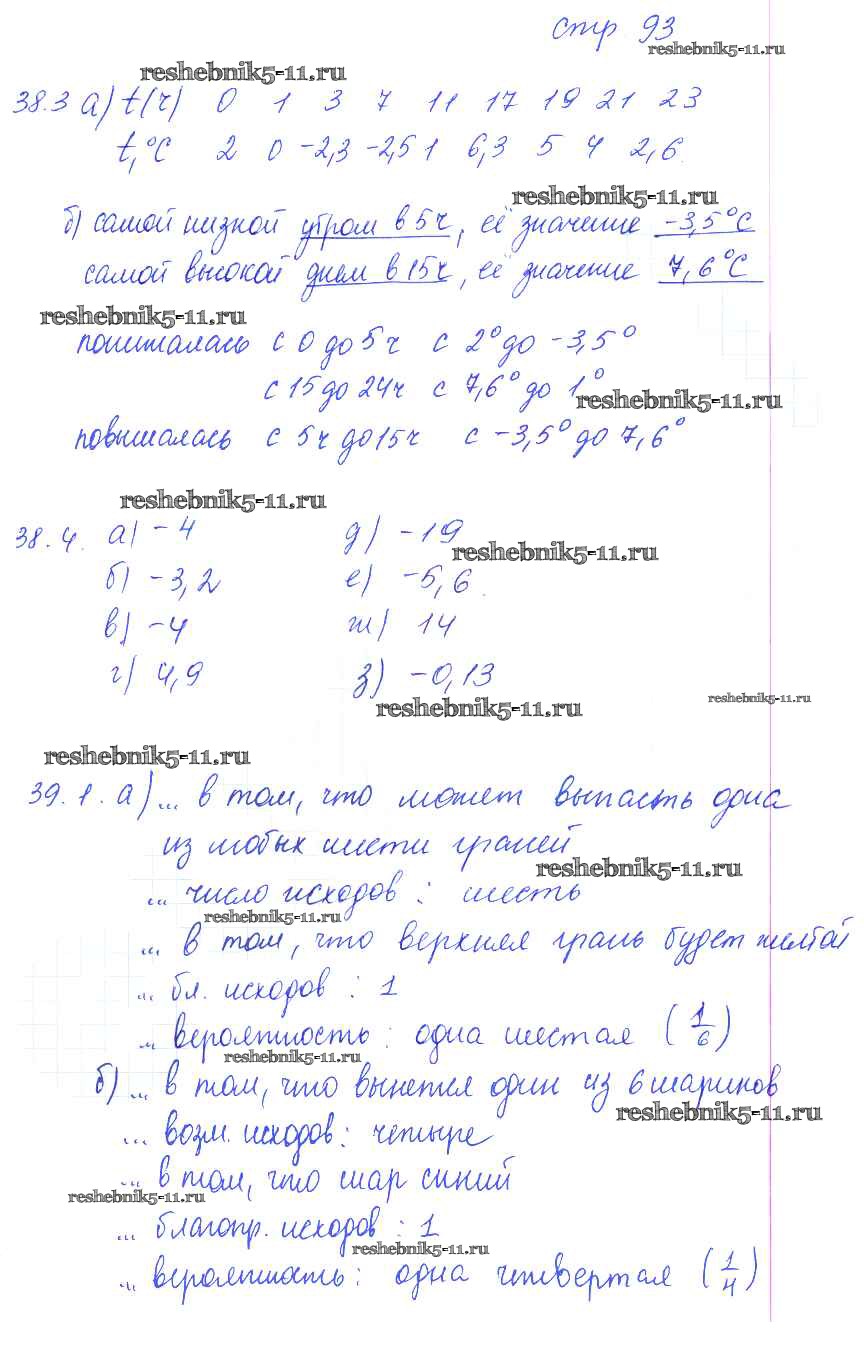 стр 93
reshebnik5-11.ru
reshebnik5-11.ru
38.3 а) t(ч) 0 1 3 7 11 17 19 21 23
t,°C 2 0 -2,3 -2,5 1 6,3 5 4 2,6
reshebnik5-11.ru
б) самой низкой утром в 5ч, её значение -3,5°С
самой высокой днем в 15ч, её значение 7,6°С
reshebnik5-11.ru
понижалась с 0 до 5ч с 2° до -3,5°
с 15 до 24ч с 7,6° до 1°
reshebnik5-11.ru
повышалась с 5ч до 15ч с -3,5° до 7,6°
reshebnik5-11.ru
38.4. а) -4 д) -19
reshebnik5-11.ru
б) -3,2 е) -5,6
в) -4 ж) 14
г) 4,9 з) -0,13
reshebnik5-11.ru
reshebnik5-11.ru
reshebnik5-11.ru
39.1. а) ... в том, что может выпасть одна
из любых шести граней
reshebnik5-11.ru
... число исходов : шесть
reshebnik5-11.ru
... в том, что верхняя грань будет желтой
... бл. исходов : 1
... вероятность : одна шестая (1/6)
reshebnik5-11.ru
б) ... в том, что вынется один из 6 шариков
reshebnik5-11.ru
... возм. исходов : четыре
... в том, что шар синий
reshebnik5-11.ru
... благопр. исходов : 1
reshebnik5-11.ru
... вероятность : одна четвертая (1/4)